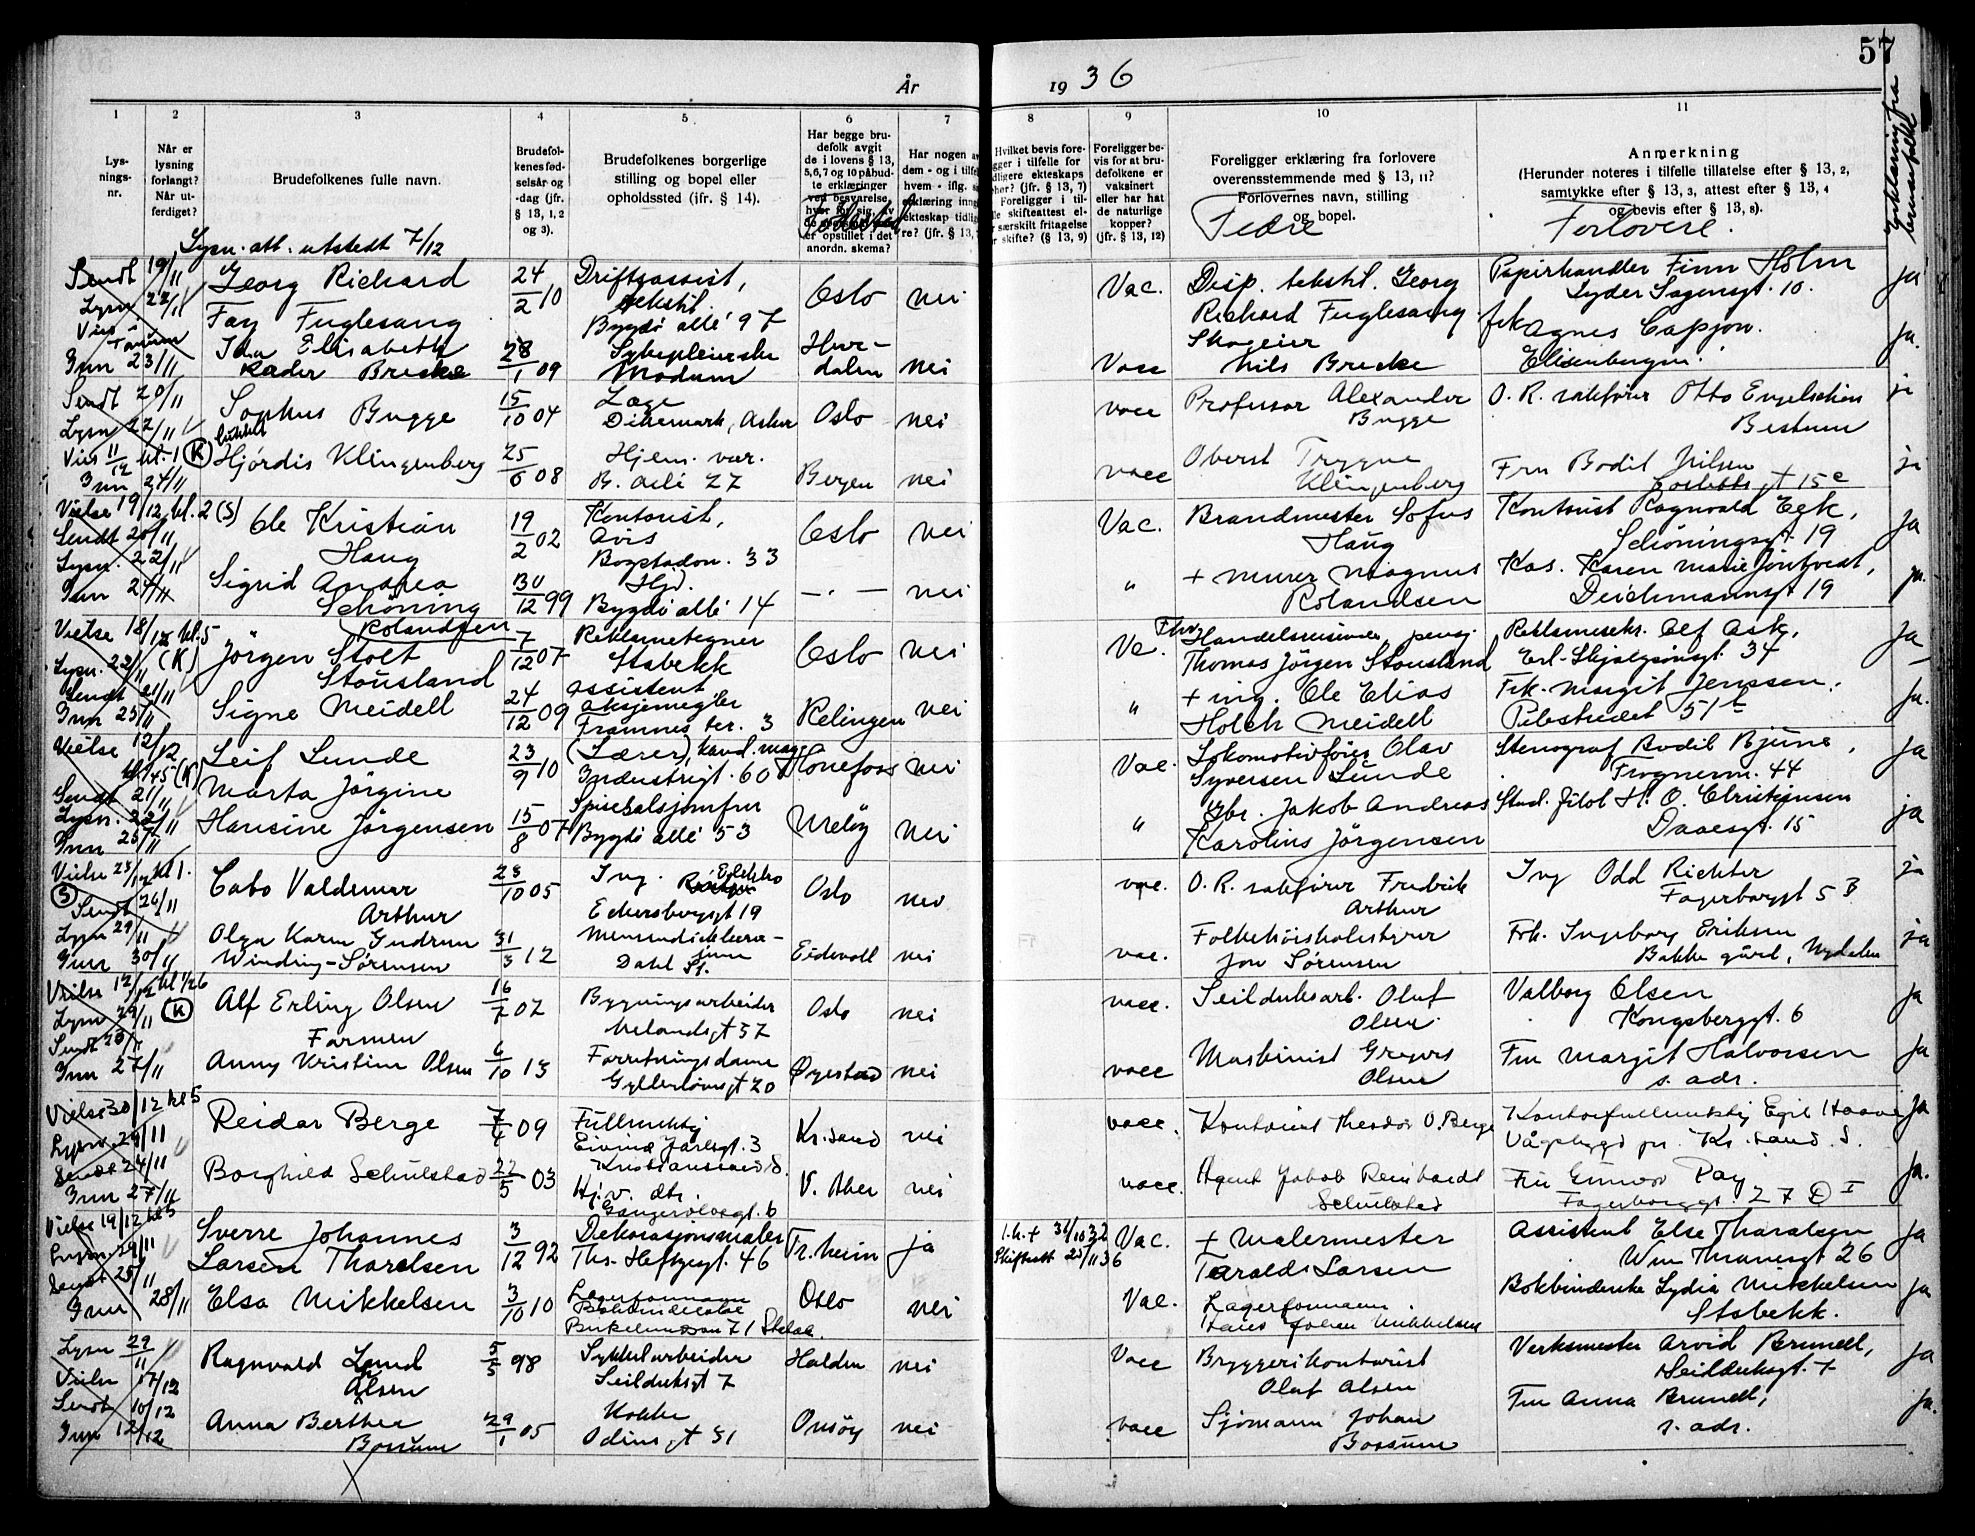 57
År
19 36
1
2
3
4
5
6
7
8
9
10
11
Lys-
nings-
nr.
Når er
lysning
forlangt?
Når ut-
ferdiget?
Brudefolkenes fulle navn.
Brudefol-
kenes fød-
selsår og
-dag (jfr.
§ 13, 1, 2
og 3).
Brudefolkenes borgerlige
stilling og bopel eller
opholdssted (jfr. § 14).
Har begge bru-
defolk avgit
de i lovens § 13,
5, 6, 7 og 10 påbud-
te erklæringer
ved besvarelse,
er opstillet i det
anordn. skema?
Har nogen av
dem - og i tilf
hvem - iflg.
erklæring inng
ekteskap tidlig
re? (jfr. § 13,
Hvilket bevis fore-
gger i tilfelle for
dligere ekteskaps
phør? (jfr. § 13, 7)
Foreligger i til-
le skifteattest el-
særskilt fritagelse
r skifte? (§ 13, 9)
Foreligger be-
vis for at bru-
defolkene er
vaksinert
eller har hat
de naturlige
kopper?
(jfr. § 13, 12)
Foreligger erklæring fra forlovere
overensstemmende med § 13, 11?
Forlovernes navn, stilling
og bopel.
Fedre
Anmerkning
(Herunder noteres i tilfelle tillatelse efter § 13, 2,
samtykke efter § 13, 3, attest efter § 13, 4
og bevis efter § 13, 8).
Forlovere.
Erklæring fra
brudefolk
Lysn. att. utstedt 7/12
Sendt 19/11 Georg Richard 24/2 10 Driftsassist, Oslo nei Vac. Disp. tekstil. Georg Papirhandler Finn Holm ja
Lysn 22/11 Fay Fuglesang tekstil. Richard Fuglesang Lyder Sagensgt. 10.
Bygdö allé 97
Ida Elisabeth 28/1 09 Sykepleierske Hur- Skogeier frk Agnes Capjon. ja.
Inn 23/11 Rader Brecke Modum dalen nei Vacc Nils Brecke Elisenbergvn.
Sendt 20/11 Sophus Bugge 15/10 04 Læge Oslo nei vacc Professor Alexander O. R. sakfører Otto Engelschiøn ja
Lysn 22/11 Dikemark, Asker Bugge Bestum
Vies 11/12 kl. 1 (K) Hjördis Klingenberg 25/6 08 Hjem. vær. Bergen nei vacc Oberst Trygve Fru Bodil Nilsen ja
Inn 24/11 B. allé 27 Klingenberg 15 c
Vielse 19/12 kl. 2 (S) Ole Kristian 19/2 02 Kontorist, Oslo nei Vac. Brandmester Sofus Kontorist Ragnvald Eek, ja
Sendt 20/11 Haug Avis Haug Schöningsgt. 19
Lysn. 22/11 Bogstadvn. 33
Inn 24/11 Sigrid Andrea 30/12 99 Hjd. — . — nei " + murer Magnus Kas. Karen Marie Jöntvedt, ja.
Schöning Bygdö allé 14 Rolandsen Deichmannsgt 19
Rolandsen
Vielse 18/12 kl. 5 (K) Jörgen Stolt 7/12 07 Reklametegner Oslo nei Va. Fhv. Handelsreisende, pensj. Reklamesekr. Olf Ask, Ja
Lysn. 22/11 Stousland Stabekk Thomas Jörgen Stousland Erl. Skjalgsönsgt. 34
Sendt 21/11 Signe Meidell 24/12 09 assistent Relingen nei " + ing. Ole Elias Frk. Margit Jenssen, ja.
Inn 25/11 aksjemegler Holck Meidell Pilestredet 51
Framnes ter. 3
Vielse 12/12 kl. 45 (K) Leif Lunde 23/9 10 (Lærer), kand. mag. Hönefoss nei Vac. Lokomotivförer Olav Stenograf Bodil Bjune, ja
Industrigt. 60 Syversen Lunde Frognervn. 44
Sendt 21/11 Marta Jörgine Spisesalsjomfru
Lysn. 22/11 Hansine Jörgensen 15/8 07 Bygdö allé 53 Melöy nei " Gbr. Jakob Andreas Stud. filol H. O. Christiansen ja
Inn 25/11 Karolius Jörgensen Daaesgt. 15
Vielse 23/12 kl 1. (S) Cato Valdemar 23/10 05 Ing. Elektro Oslo nei vac. O. R. sakfører Fredrik Ing Odd Richter ja
Sendt 26/11 Arthur Eckersbergsgt 19 Arthur Fagerborggt 5 B
Lysn 29/11 Olga Karen Gudrun 31/3 12 Eidsvoll nei vac. Folkehöiskolestyrer Frk. Ingeborg Eriksen ja
Inn 30/11 Winding-Sørensen Jon Sörensen Bakke gård, Nydalen
Vielse 12/12 (K) Alf Erling Olsen 16/7 02 Bygningsarbeider Oslo nei vacc. Seilduksarb. Oluf Valborg Olsen ja
Lysn 29/11 Farmen Welandsgt 37 Olsen Kongsberggt. 6
Inn 27/11 Anny Kristine Olsen 6/10 13 Forretningsdame Øyestad nei vacc Maskinist Gregers Fru Margit Halvorsen ja
Gyllenløvesgt 20 Olsen s. adr.
Vielse 30/12 kl 5 Reidar Berge 7/4 09 Fullmektig Kr.sand nei vacc. Kontorist Theodor O. Berge Kontorfullmektig Egil Haave Ja
Lysn. 29/11 Eivind Jarlsgt. 3 Vågsbygd pr. Kr. sand. S.
Kristiansand S.
Sendt 24/11 Borghild Schulstad 22/5 03 Hj. v. dtr. V. Aker nei vacc. Agent Jakob Reinhardt Fru Gunvor Ray Ja.
Inn 27/11 Schulstad Fagerborggt. 27 D I
Vielse 19/12 kl 5 Sverre Johannes 3/12 92 Dekorasjonsmaler Tr.heim ja Vac. + Malermester Assistent Else Tharalsen Ja
Lysn. 29/11 Larsen Tharalsen Ths. Heftyesgt. 46 Skifteatt 25/11 36 Tarald Larsen Wm Thranesgt 26
Sendt 25/11
Inn 28/11 Elsa Mikkelsen 3/10 10 Oslo nei Vac. Lagerformann Bokbinderske Lydia Mikkelsen Ja
Hans Johan Mikkelsen Stabekk.
Lysn 29/11 Ragnvald Lund 5/5 98 Sykkelarbeider Halden nei Vacc Bryggerikontorist Verksmester Arvid Brunell, ja
Vielse 17/12 Olsen Seilduksgt 7 Oluf Olsen Seilduksgt. 7
Sendt 10/12 Anna Berthea 29/1 05 Kokke Onsøy nei vacc Sjømann Johan Fru Anna Brunell, ja.
Inn 12/12 Bossum Odins gt 31 Bossum s. adr.